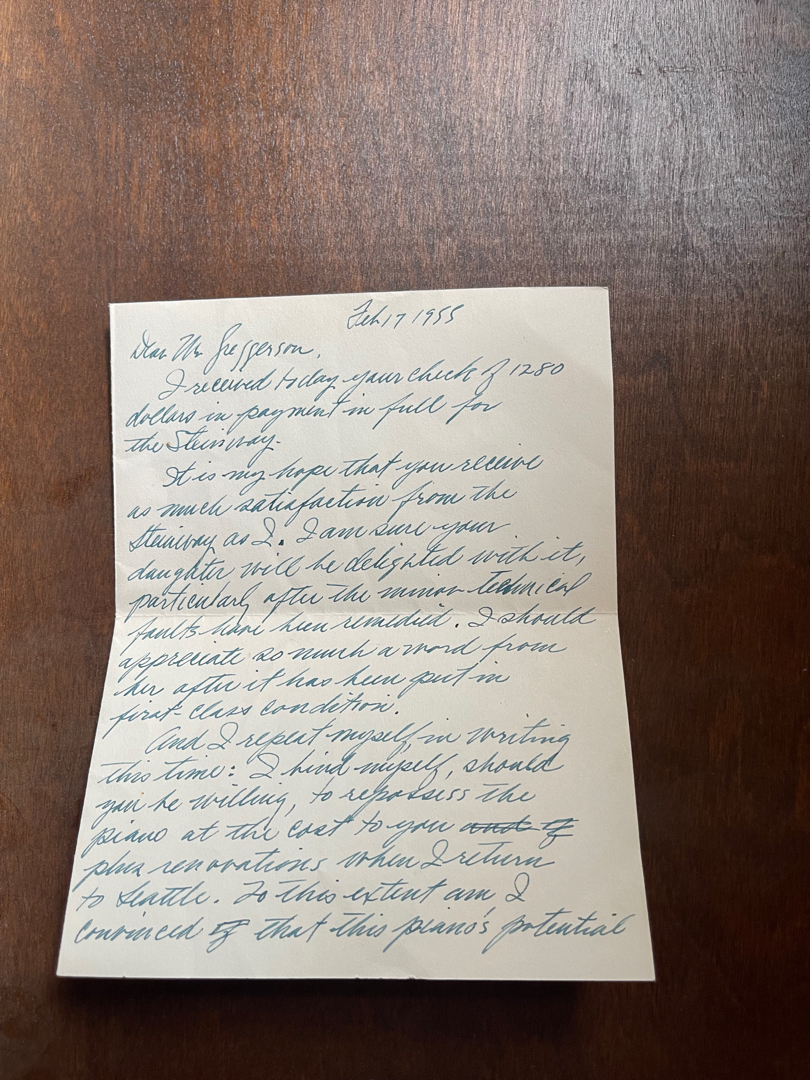 Feb 17 1955
Dear Mr. Greggerson,
I received today your check of 1280
dollars in payment in full for
the Steinway.
It is my hope that you receive
as much satisfaction from the
Steinway as I. I am sure your
daughter will be delighted with it,
particularly after the minor technical
faults have been remedied. I should
appreciate so much a word from
her after it has been put in
first-class condition.
And I repeat myself, in writing
this time: I bind myself, should
you be willing, to repossess the
piano at the cost to you and if
plus renovations when I return
to Seattle. To this extent am I
convinced of that this piano's potential